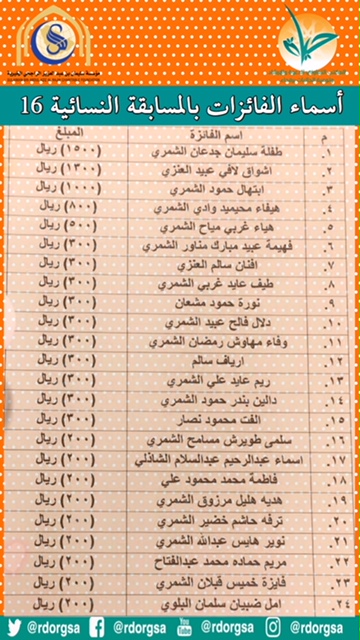 مؤسسة سليمان بن عبد العزيز الراجحي الخيرية
أسماء الفائزات بالمسابقة النسائية 16
م اسم الفائزة المبلغ
١. طفلة سليمان جدعان الشمري (١٥٠٠) ريال
٢. اشواق لافي عبيد العنزي (١٣٠٠) ريال
٣. ابتهال حمود الشمري (١٠٠٠) ريال
٤. هيفاء محيميد وادي الشمري (٨٠٠) ريال
٥. هياء غربي مياح الشمري (٥٠٠) ريال
٦. فهيمة عبيد مبارك مناور الشمري (٣٠٠) ريال
٧. افنان سالم العنزي (٣٠٠) ريال
٨. طيف عايد غربي الشمري (٣٠٠) ريال
٩. نورة حمود مشعان (٣٠٠) ريال
١٠. دلال فالح عبيد الشمري (٣٠٠) ريال
١١. وفاء مهاوش رمضان الشمري (٣٠٠) ريال
١٢. ارياف سالم (٣٠٠) ريال
١٣. ريم عايد علي الشمري (٣٠٠) ريال
١٤. دالين بندر حمود الشمري (٣٠٠) ريال
١٥. الفت محمود نصار (٣٠٠) ريال
١٦. سلمى طويرش مسامح الشمري (٢٠٠) ريال
١٧. اسماء عبدالرحيم عبدالسلام الشاذلي (٢٠٠) ريال
١٨. فاطمة محمد محمود علي (٢٠٠) ريال
١٩. هديه هليل مرزوق الشمري (٢٠٠) ريال
٢٠. ترفه حاشم خضير الشمري (٢٠٠) ريال
٢١. نوير هايس عبدالله الشمري (٢٠٠) ريال
٢٢. مريم حماده محمد عبدالفتاح (٢٠٠) ريال
٢٣. فايزة خميس قبلان الشمري (٢٠٠) ريال
٢٤. امل ضبيان سلمان البلوي (٢٠٠) ريال
@rdorgsa @rdorgsa @rdorgsa @rdorgsa